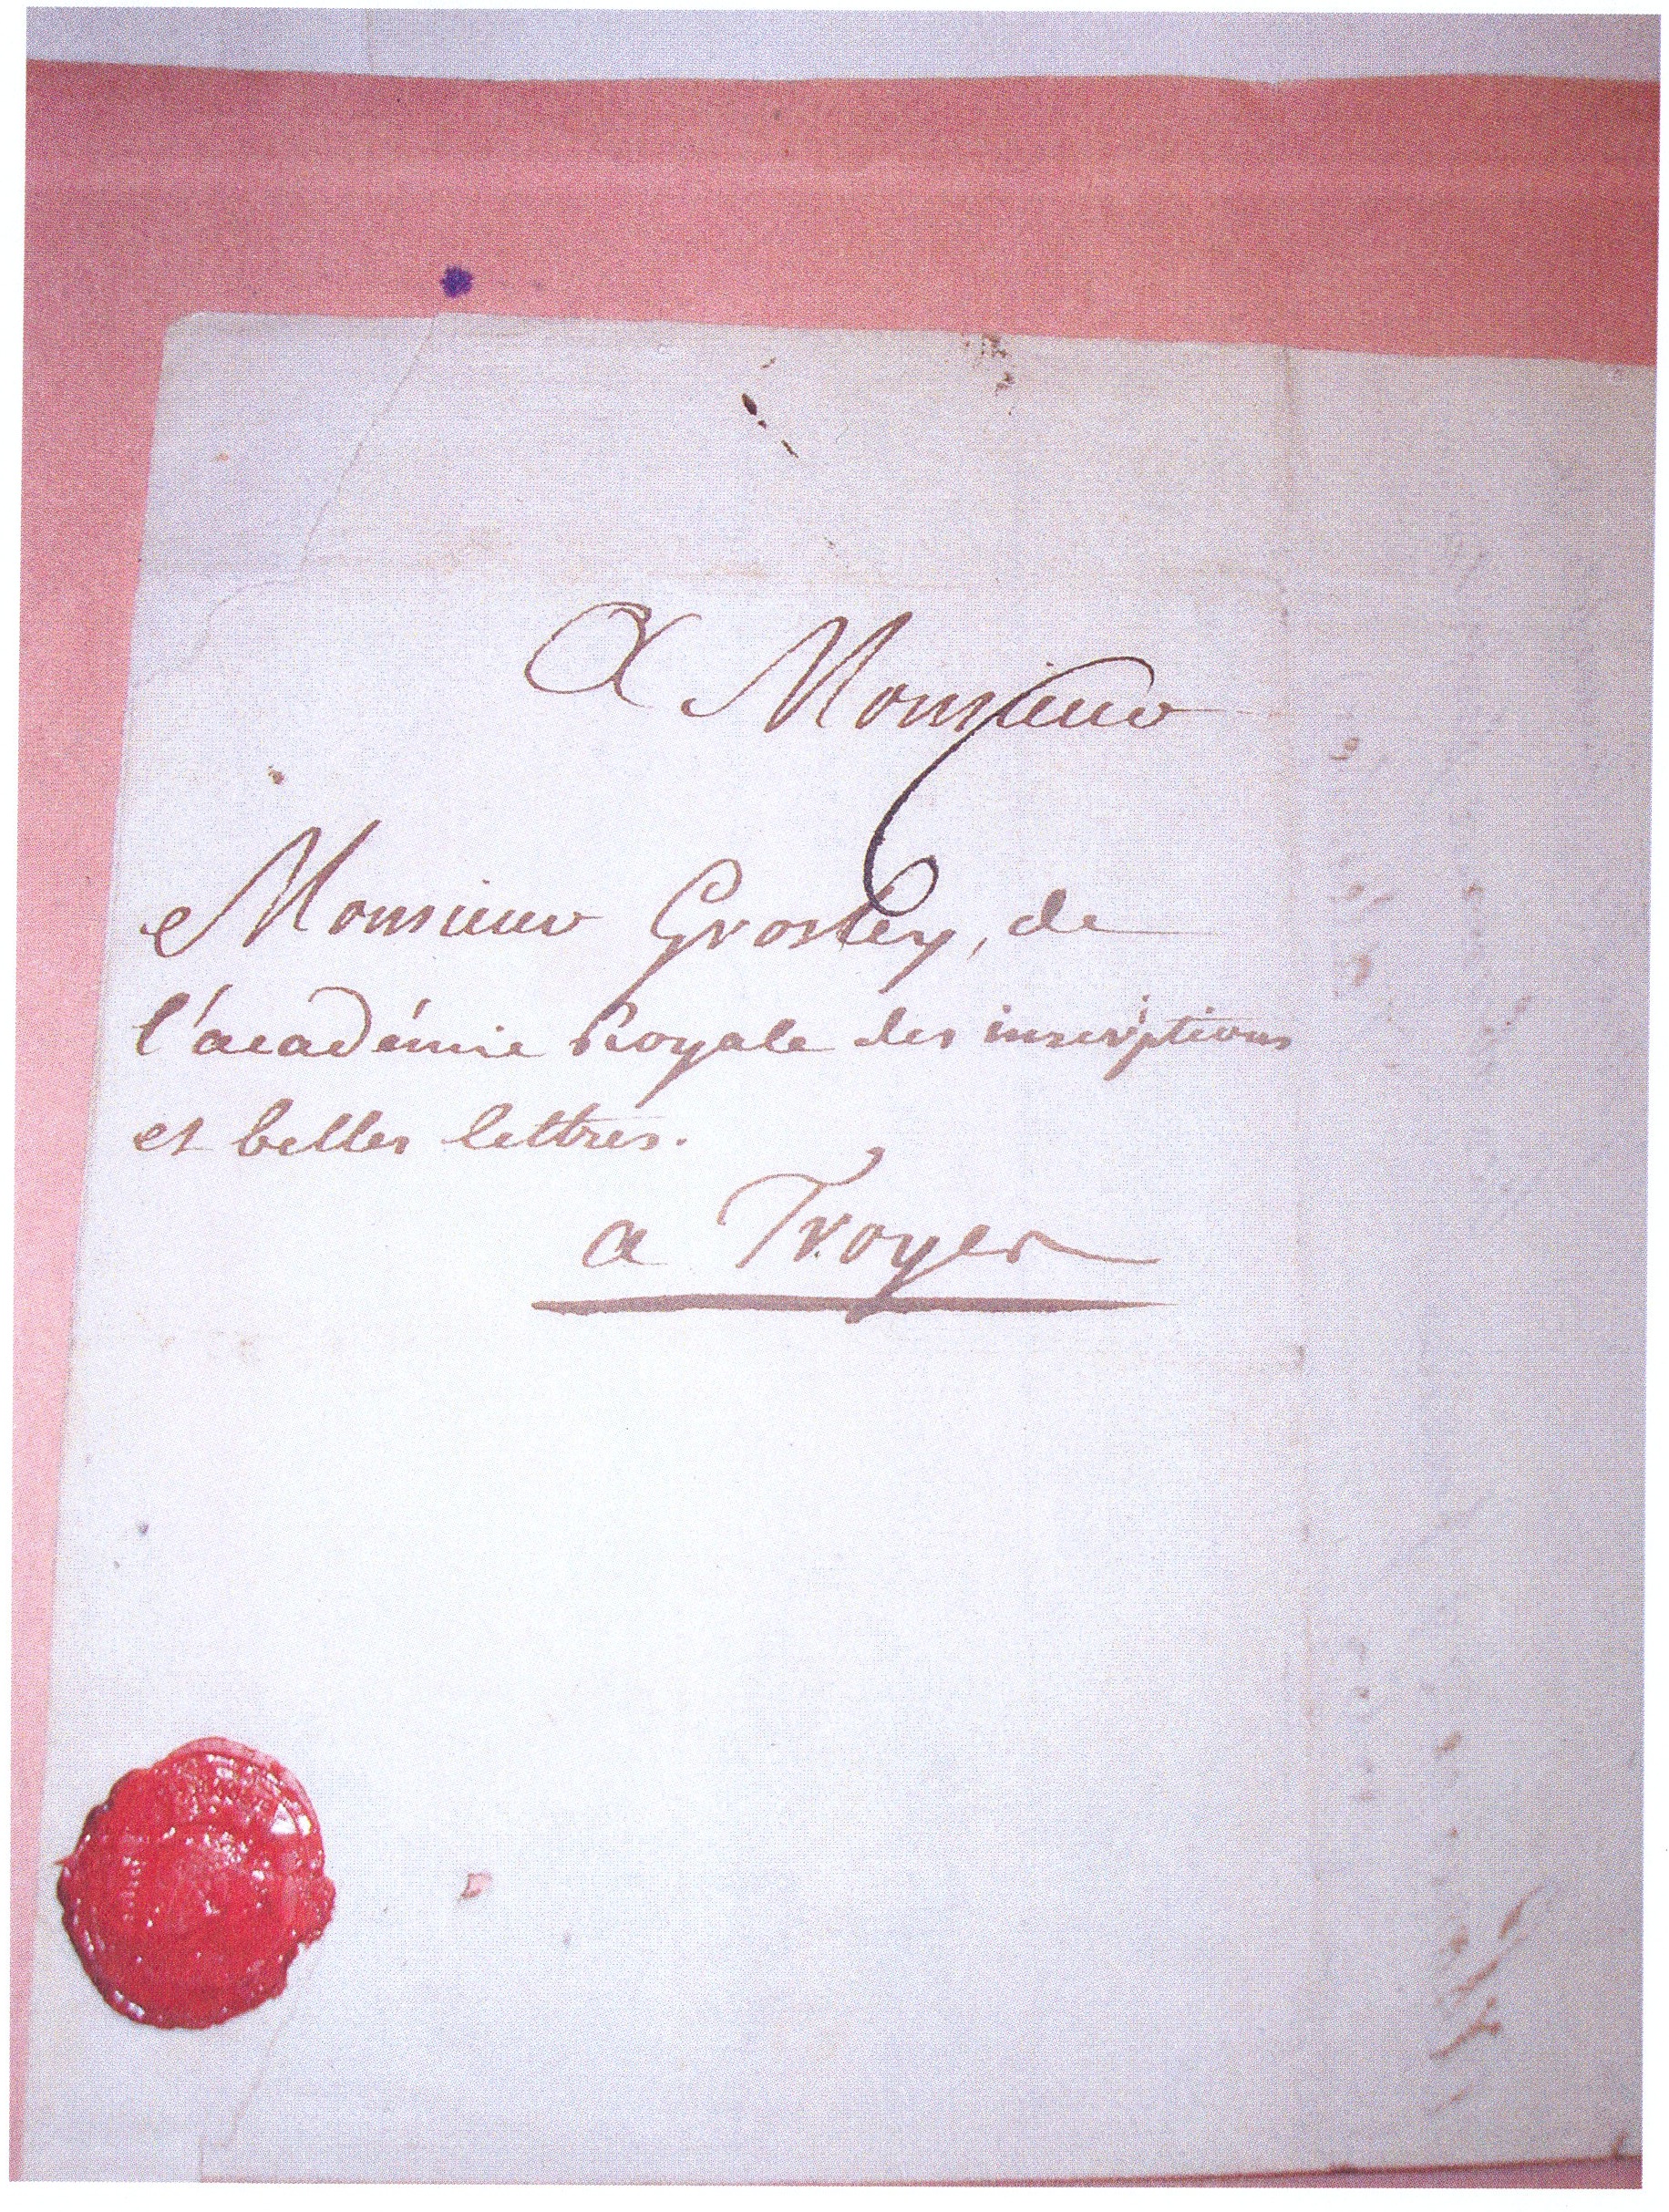 A Monsieur
6
Monsieur Grosley, de
l'académie Royale des inscriptions
et belles lettres.
a Troyes